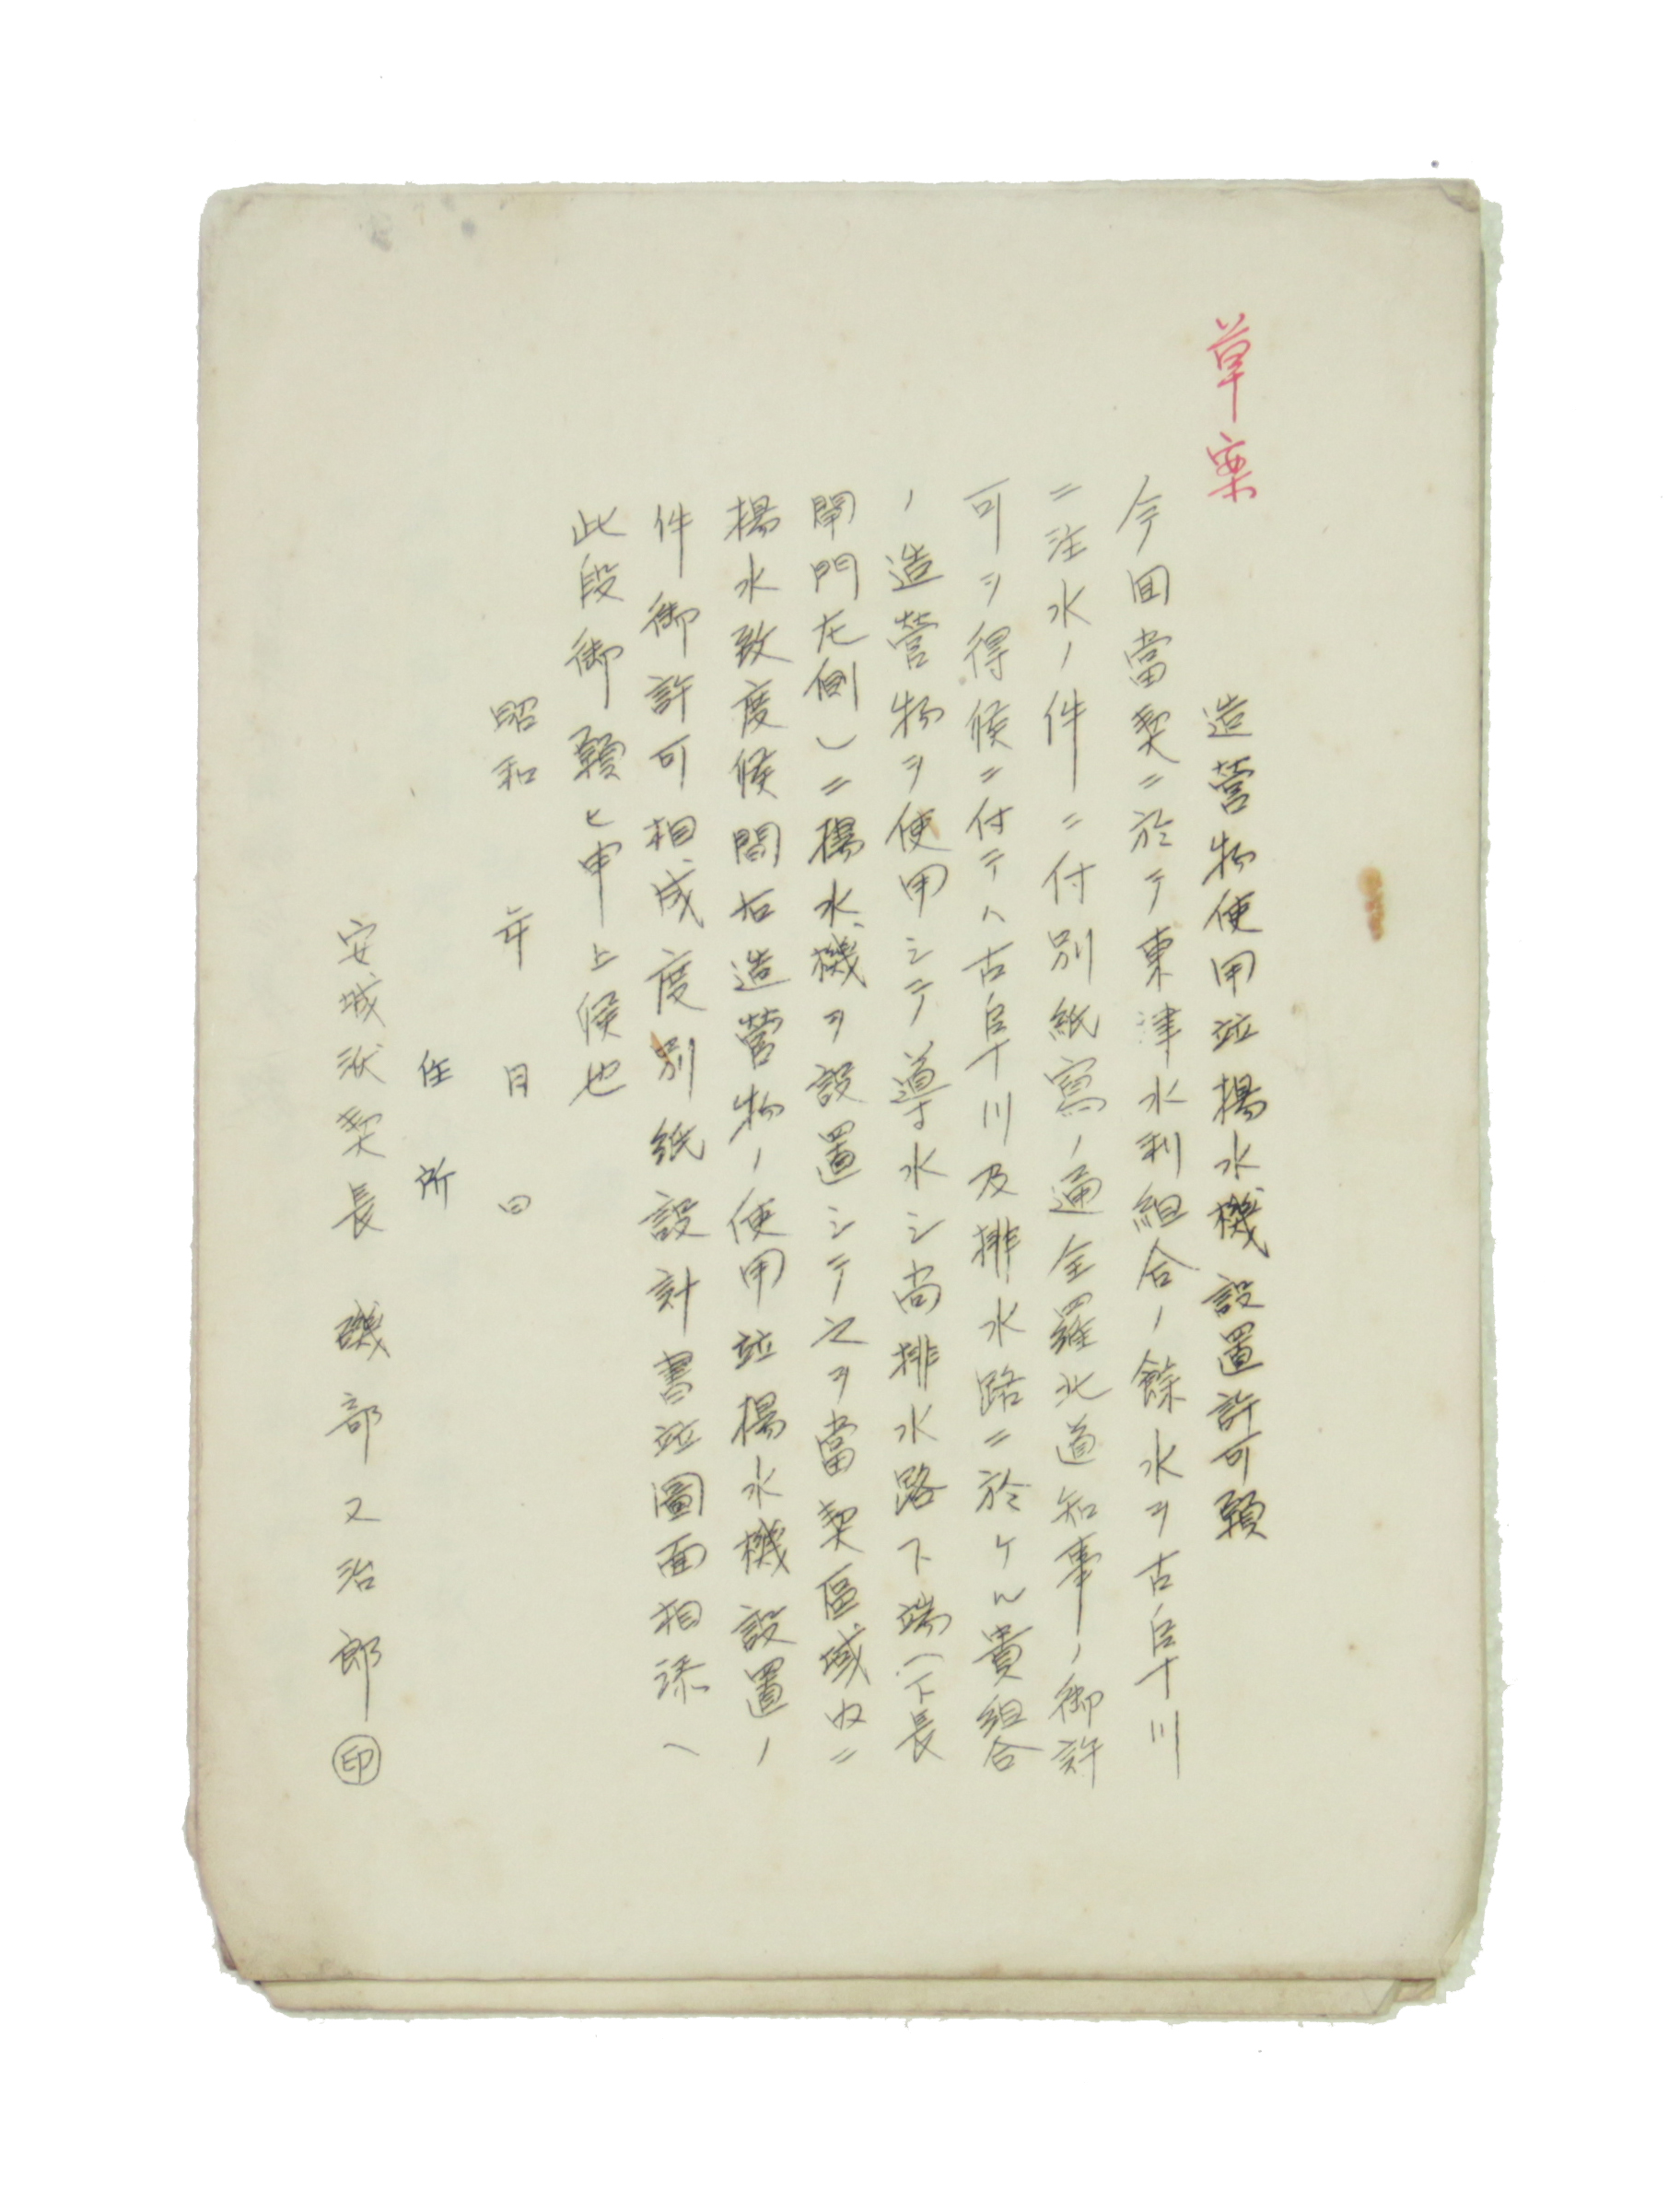 草案
造營物使用竝揚水機設置許可願
今回當契ニ於テ東津水利組合ノ餘水ヲ古阜川
ニ注水ノ件ニ付別紙寫ノ通全羅北道知事ノ御許
可ヲ得候ニ付テハ古阜川及排水路ニ於ケル貴組合
ノ造營物ヲ使用シテ導水シ尚排水路下端(下長
閘門左側)ニ揚水機ヲ設置シテ之ヲ當契區域内ニ
揚水致度候間右造營物ノ使用竝揚水機設置ノ
件御許可相成度別紙設計書竝圖面相添ヘ
此段御願ヒ申上候也
昭和 年 月 日
住所
安城洑契長 磯部又治郎 印